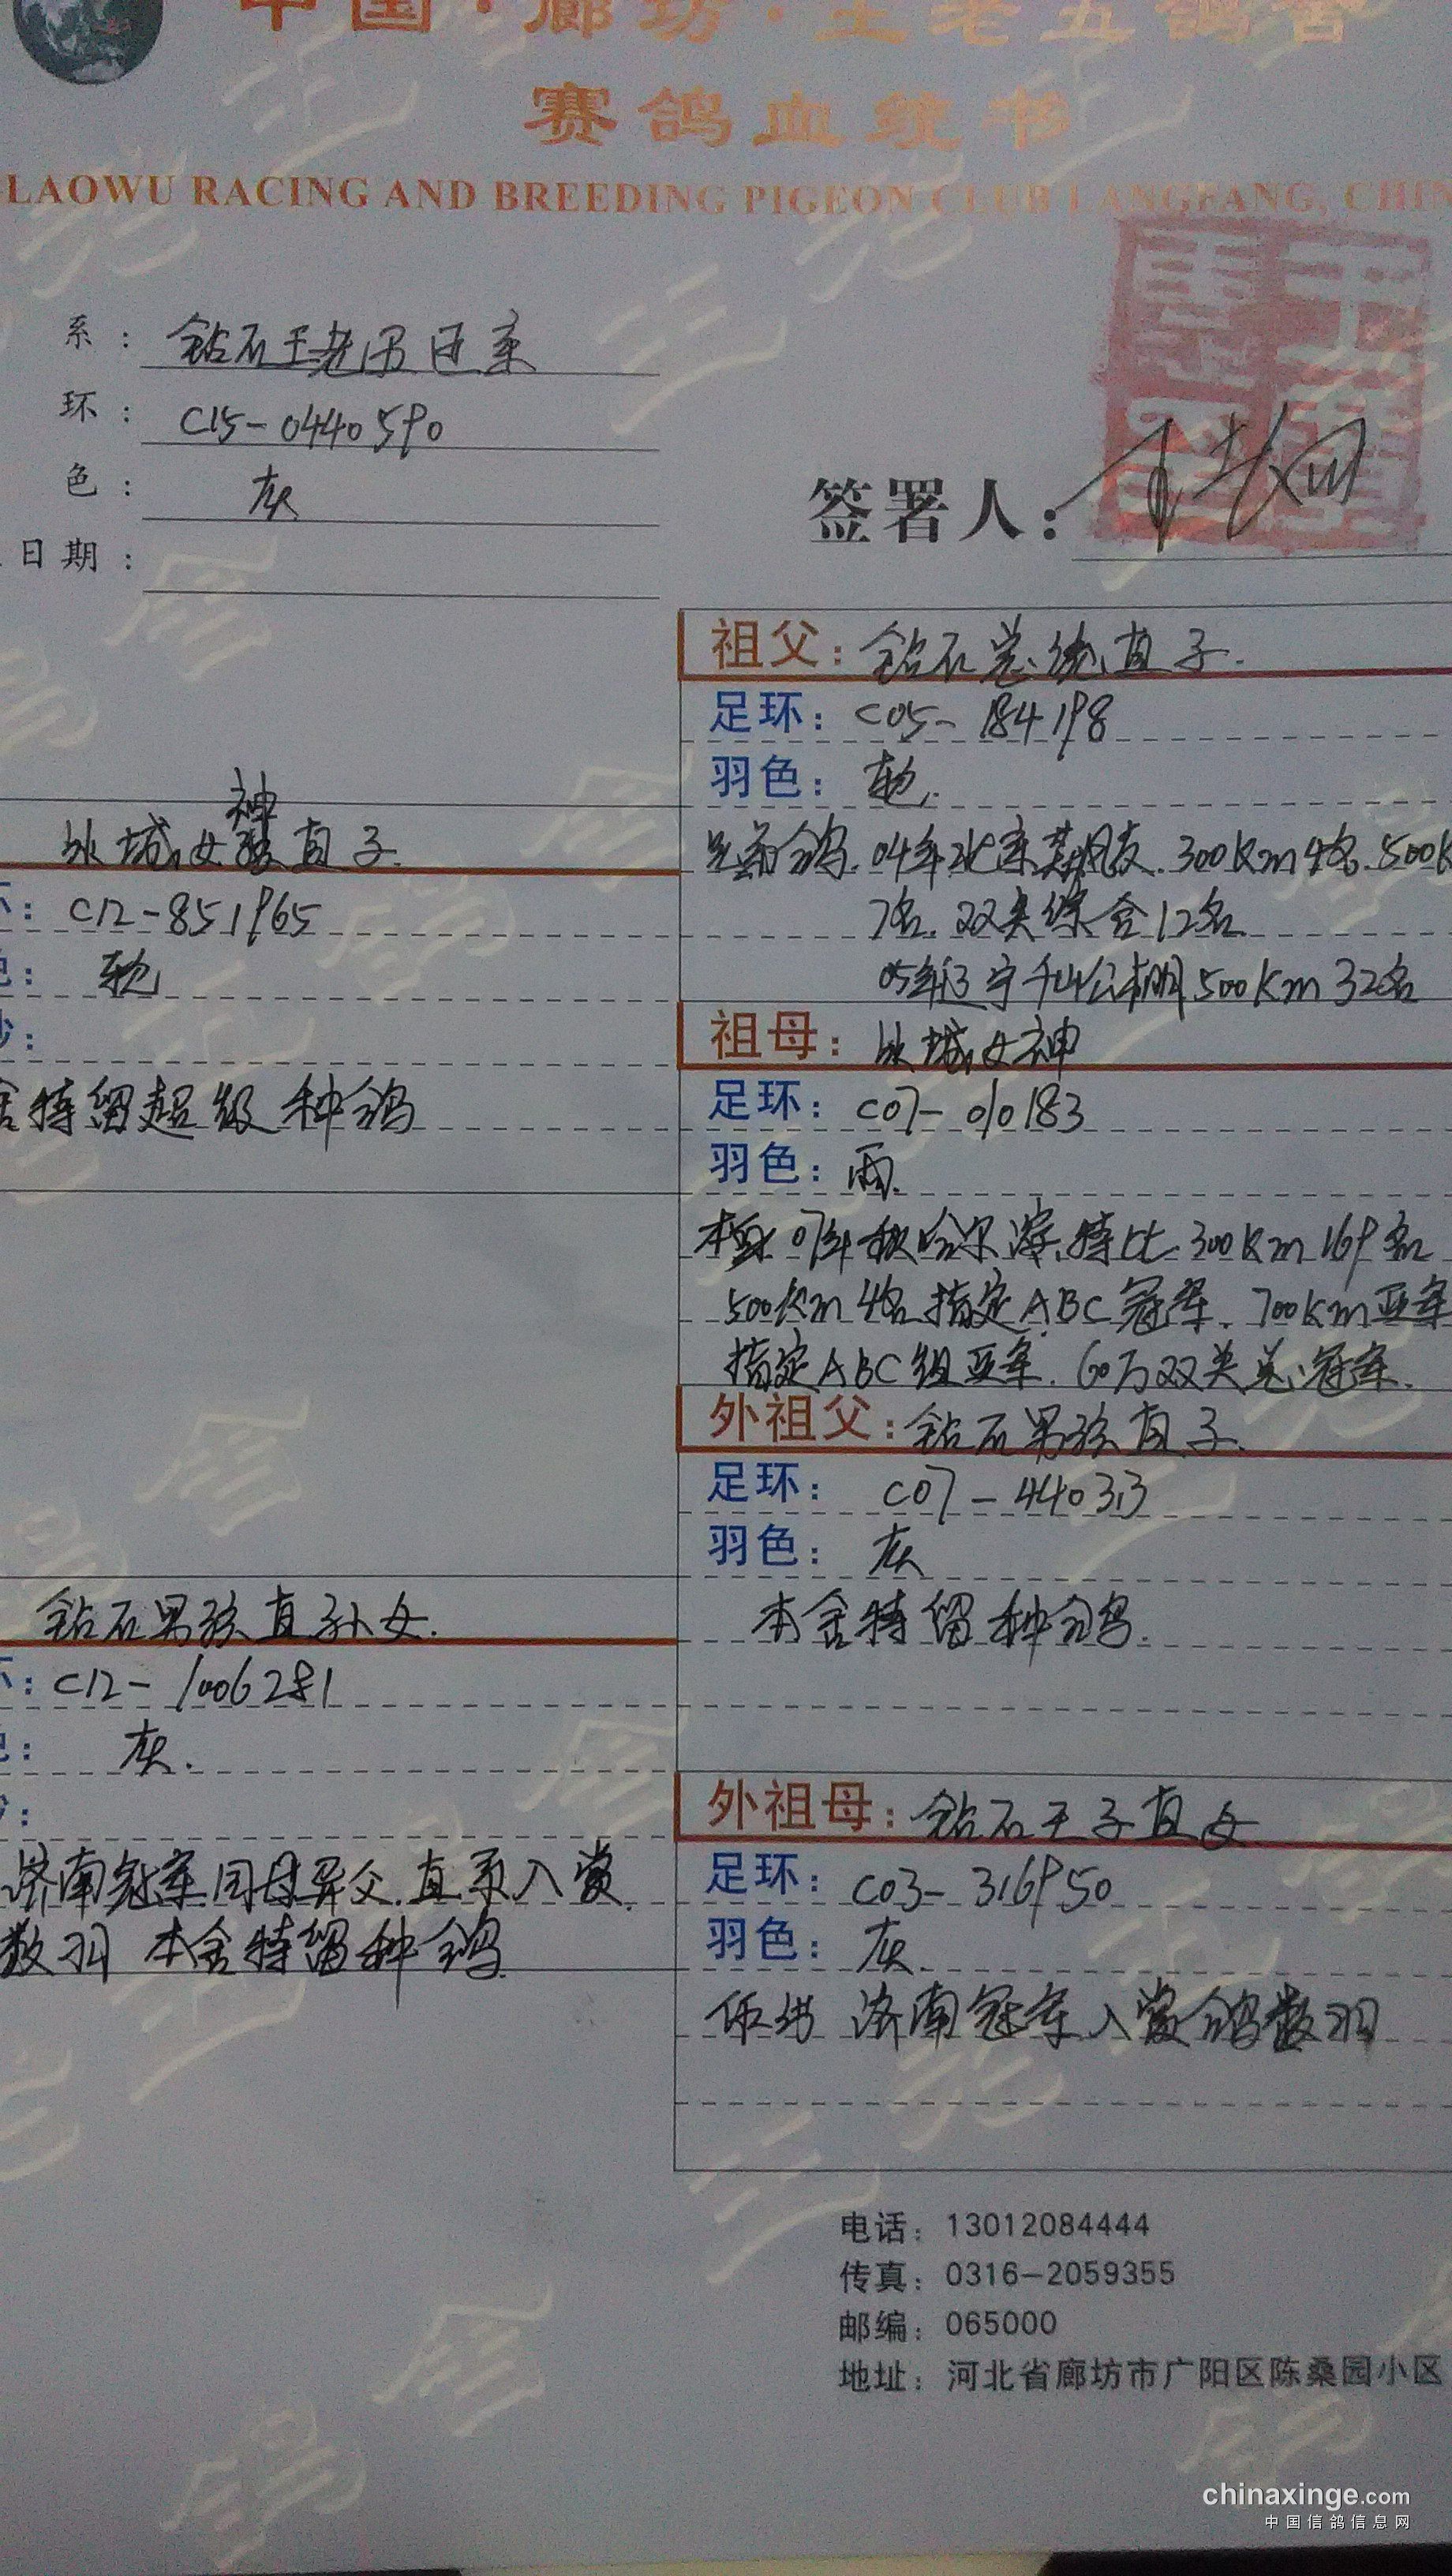 中国·廊坊·王老五鸽舍
赛鸽血统书
LAOWU RACING AND BREEDING PIGEON CLUB LANGFANG, CHIN
系：钻石王老五近亲
环：C15-0440590
色：灰
日期：
签署人：
冰城女神直子.
环：C12-851965
色：轨
舍特留超级种鸽
钻石男孩直孙女.
环：C12-1006281
色：灰.
济南冠军同母异父.直系入赏
数羽 本舍特留种鸽
祖父：钻石总统直子.
足环：C05-184198
羽色：轨.
兄弟鸽.04年北京某朋友.300Km4名.500K
7名.双关综合12名.
05年辽宁千山公棚500Km32名
祖母：冰城女神
足环：C07-010183
羽色：雨.
本身07年秋哈尔滨特比300Km169名
500Km4名指定ABC冠军.700Km亚军
指定ABC组亚军.60万双关总冠军.
外祖父：钻石男孩直子.
足环：C07-440313
羽色：灰
本舍特留种鸽.
外祖母：钻石王子直女
足环：C03-316950
羽色：灰.
作出 济南冠军入赏鸽数羽
电话：13012084444
传真：0316-2059355
邮编：065000
地址：河北省廊坊市广阳区陈桑园小区
chinaxinge.com
中国信鸽信息网